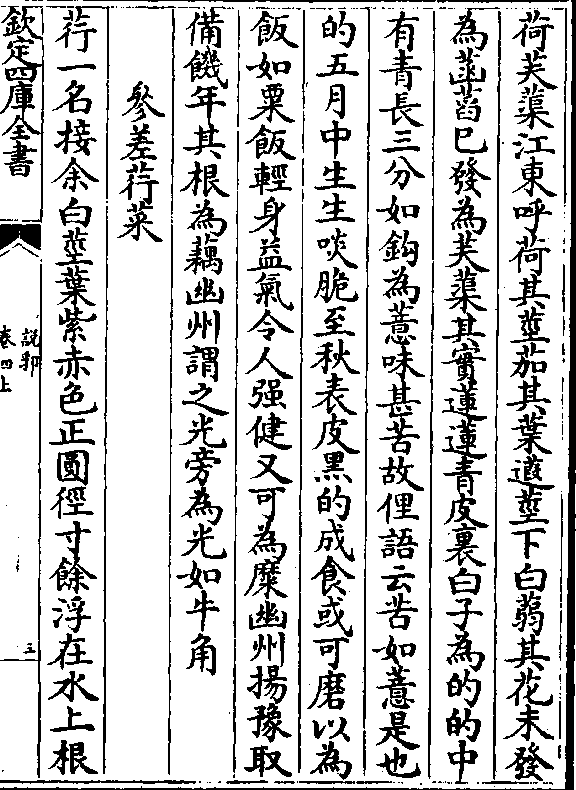 荷芙蕖江東呼荷其莖茄其葉蕸莖下白蒻其花未發
為菡萏已發為芙蕖其實蓮蓮青皮裏白子為的的中
有青長三分如鈎為薏味甚苦故俚語云苦如薏是也
的五月中生生啖脆至秋表皮黑的成食或可磨以為
飯如粟飯輕身益氣令人强健又可為糜幽州揚豫取
備饑年其根為藕幽州謂之光旁為光如牛角
參差荇菜
荇一名接余白莖葉紫赤色正圓徑寸餘浮在水上根
欽定四庫全書
說郛
卷四上
三